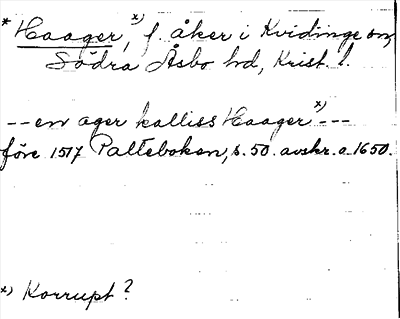 * Haager, x) f. åker i Kvidinge sn,
Södra Åsbo hd, Krist. l.
-- en ager kalliss Haager x) ---
före 1517 Palteboken, s. 50. avskr. o. 1650.
x) Korrupt?